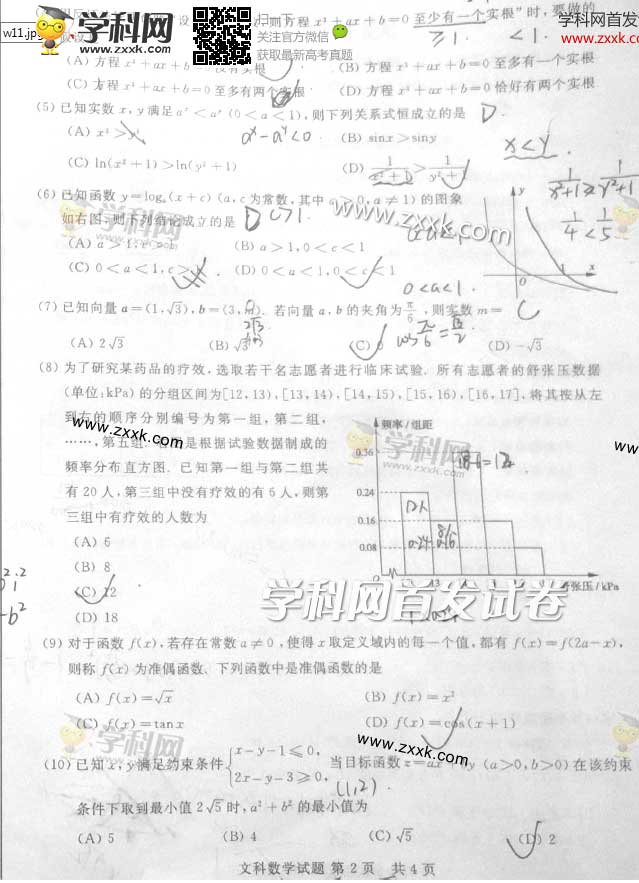 学科网
www.zxxk.com
扫一扫
关注官方微信
获取最新高考真题
学科网
www.zxxk.
w11.jp
则方程 x³+ax+b=0 至少有一个实根"时，要做的
≥1. <1.
(A) 方程 x³+ax+b=0 没有实根 (B) 方程 x³+ax+b=0 至多有一个实根
(C) 方程 x³+ax+b=0 至多有两个实根 (D) 方程 x³+ax+b=0 恰好有两个实根
(5) 已知实数 x, y 满足 aˣ<aʸ (0<a<1), 则下列关系式恒成立的是 D.
(A) x³>y³ aˣ-aʸ<0 (B) sinx>siny
x<y.
(C) ln(x²+1)>ln(y²+1) (D) 1/(x²+1)>1/(y²+1)
1/4<1/5
(6) 已知函数 y=logₐ(x+c) (a, c 为常数, 其中 a>0, a≠1) 的图象
如右图, 则下列结论成立的是 D c>1.
www.zxxk.com
(A) a>1, c>1 (B) a>1, 0<c<1
(C) 0<a<1, c>1 (D) 0<a<1, 0<c<1
0<a<1.
y
O 1 x
(7) 已知向量 a=(1,√3), b=(3,m). 若向量 a, b 的夹角为 π/6, 则实数 m= C
(A) 2√3 (B) √3 (C) 0 (D) -√3
cos π/6=√3/2
(8) 为了研究某药品的疗效, 选取若干名志愿者进行临床试验. 所有志愿者的舒张压数据
(单位:kPa) 的分组区间为[12,13), [13,14), [14,15), [15,16), [16,17], 将其按从左
到右的顺序分别编号为第一组, 第二组,
……, 第五组. 右图是根据试验数据制成的
频率分布直方图. 已知第一组与第二组共
有 20 人, 第三组中没有疗效的有 6 人, 则第
三组中有疗效的人数为
www.zxxk.com
学科网
zxxk.com
www
频率 / 组距
0.36
0.24
0.16
0.08
0
舒张压 / kPa
18-6=12
12人
0.24
(A) 6
(B) 8
(C) 12
(D) 18
学科网首发试卷
(9) 对于函数 f(x), 若存在常数 a≠0, 使得 x 取定义域内的每一个值, 都有 f(x)=f(2a-x),
则称 f(x) 为准偶函数. 下列函数中是准偶函数的是
(A) f(x)=√x (B) f(x)=x²
(C) f(x)=tanx (D) f(x)=cos(x+1)
学科网
www.zxxk.com
(10) 已知 x, y 满足约束条件 {x-y-1≤0, 2x-y-3≥0, 当目标函数 z=ax+by (a>0,b>0) 在该约束
条件下取到最小值 2√5 时, a²+b² 的最小值为
(1,2)
(A) 5 (B) 4 (C) √5 (D) 2
文科数学试题 第 2 页 共 4 页